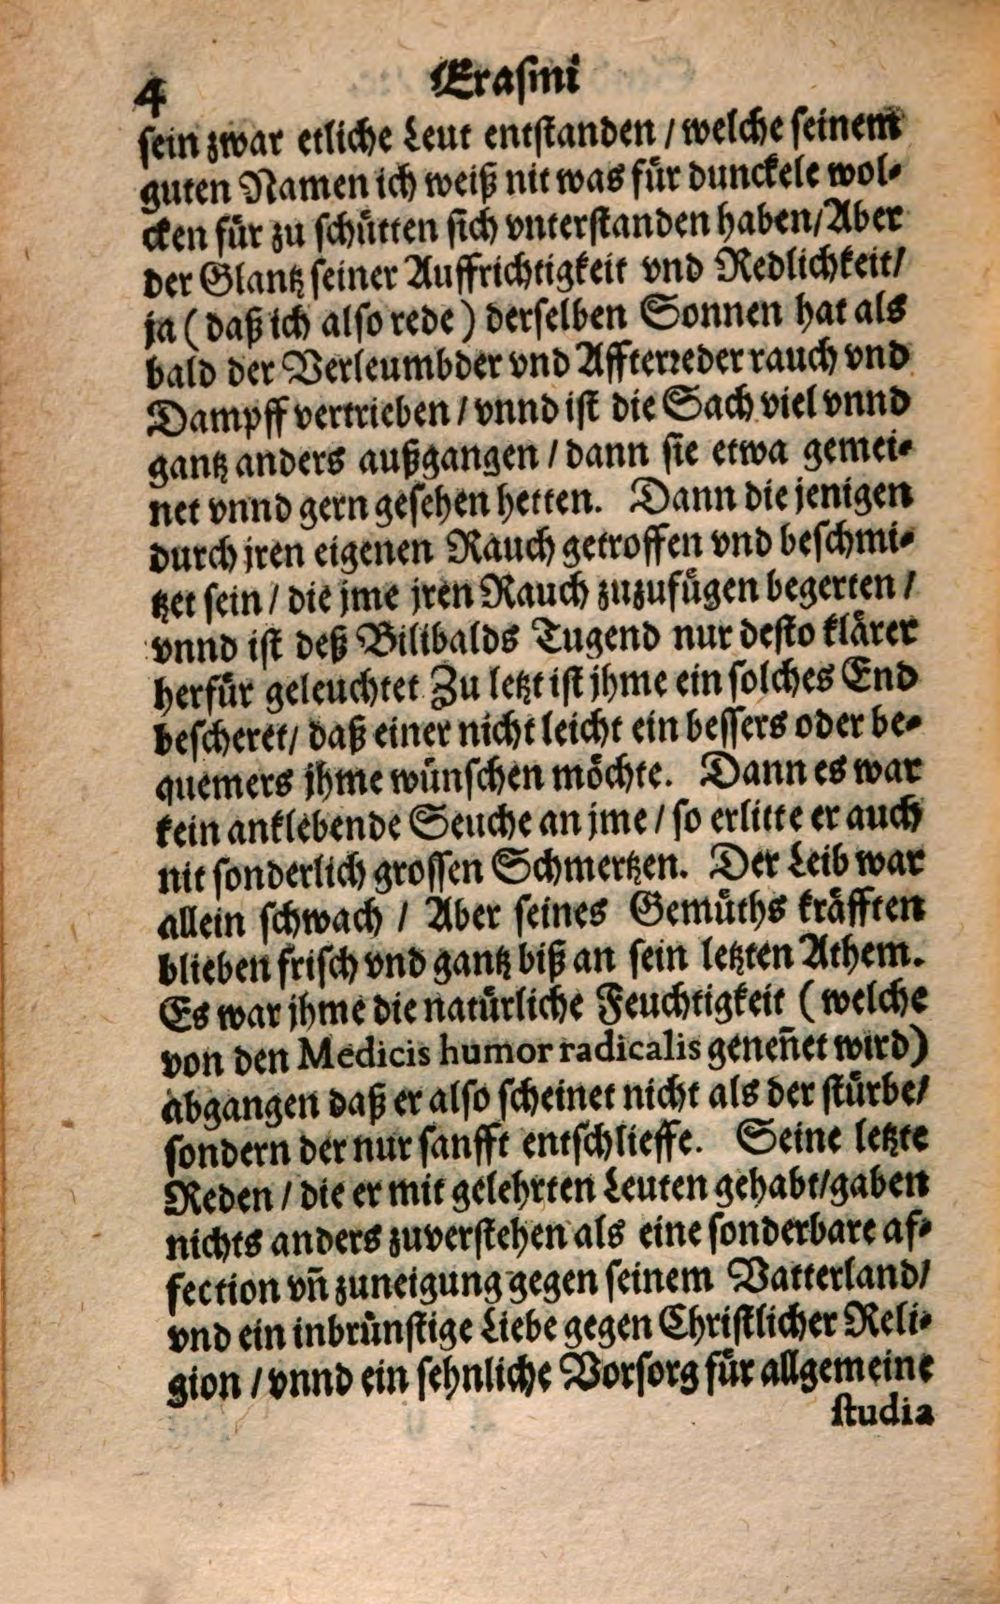 4
Erasmi
sein zwar etliche Leut entstanden / welche seinem
guten Namen ich weiß nit was für dunckele wol-
cken für zu schütten sich vnterstanden haben/Aber
der Glantz seiner Auffrichtigkeit vnd Redlichkeit/
ja (daß ich also rede) derselben Sonnen hat als
bald der Verleumbder vnd Affterreder rauch vnd
Dampff vertrieben / vnnd ist die Sach viel vnnd
gantz anders außgangen / dann sie etwa gemei-
net vnnd gern gesehen hetten. Dann die jenigen
durch jren eigenen Rauch getroffen vnd beschmi-
tzet sein / die jme jren Rauch zuzufügen begerten /
vnnd ist deß Bilibalds Tugend nur desto klärer
herfür geleuchtet Zu letzt ist jhme ein solches End
bescheret/ daß einer nicht leicht ein bessers oder be-
quemers jhme wünschen möchte. Dann es war
kein anklebende Seuche an jme / so erlitte er auch
nit sonderlich grossen Schmertzen. Der Leib war
allein schwach / Aber seines Gemüths kräfften
blieben frisch vnd gantz biß an sein letzten Athem.
Es war jhme die natürliche Feuchtigkeit (welche
von den Medicis humor radicalis geneñet wird)
abgangen daß er also scheinet nicht als der stürbe/
sondern der nur sanfft entschlieffe. Seine letzte
Reden / die er mit gelehrten Leuten gehabt/gaben
nichts anders zuverstehen als eine sonderbare af-
fection vñ zuneigung gegen seinem Vatterland/
vnd ein inbrünstige Liebe gegen Christlicher Reli-
gion / vnnd ein sehnliche Vorsorg für allgemeine
studia